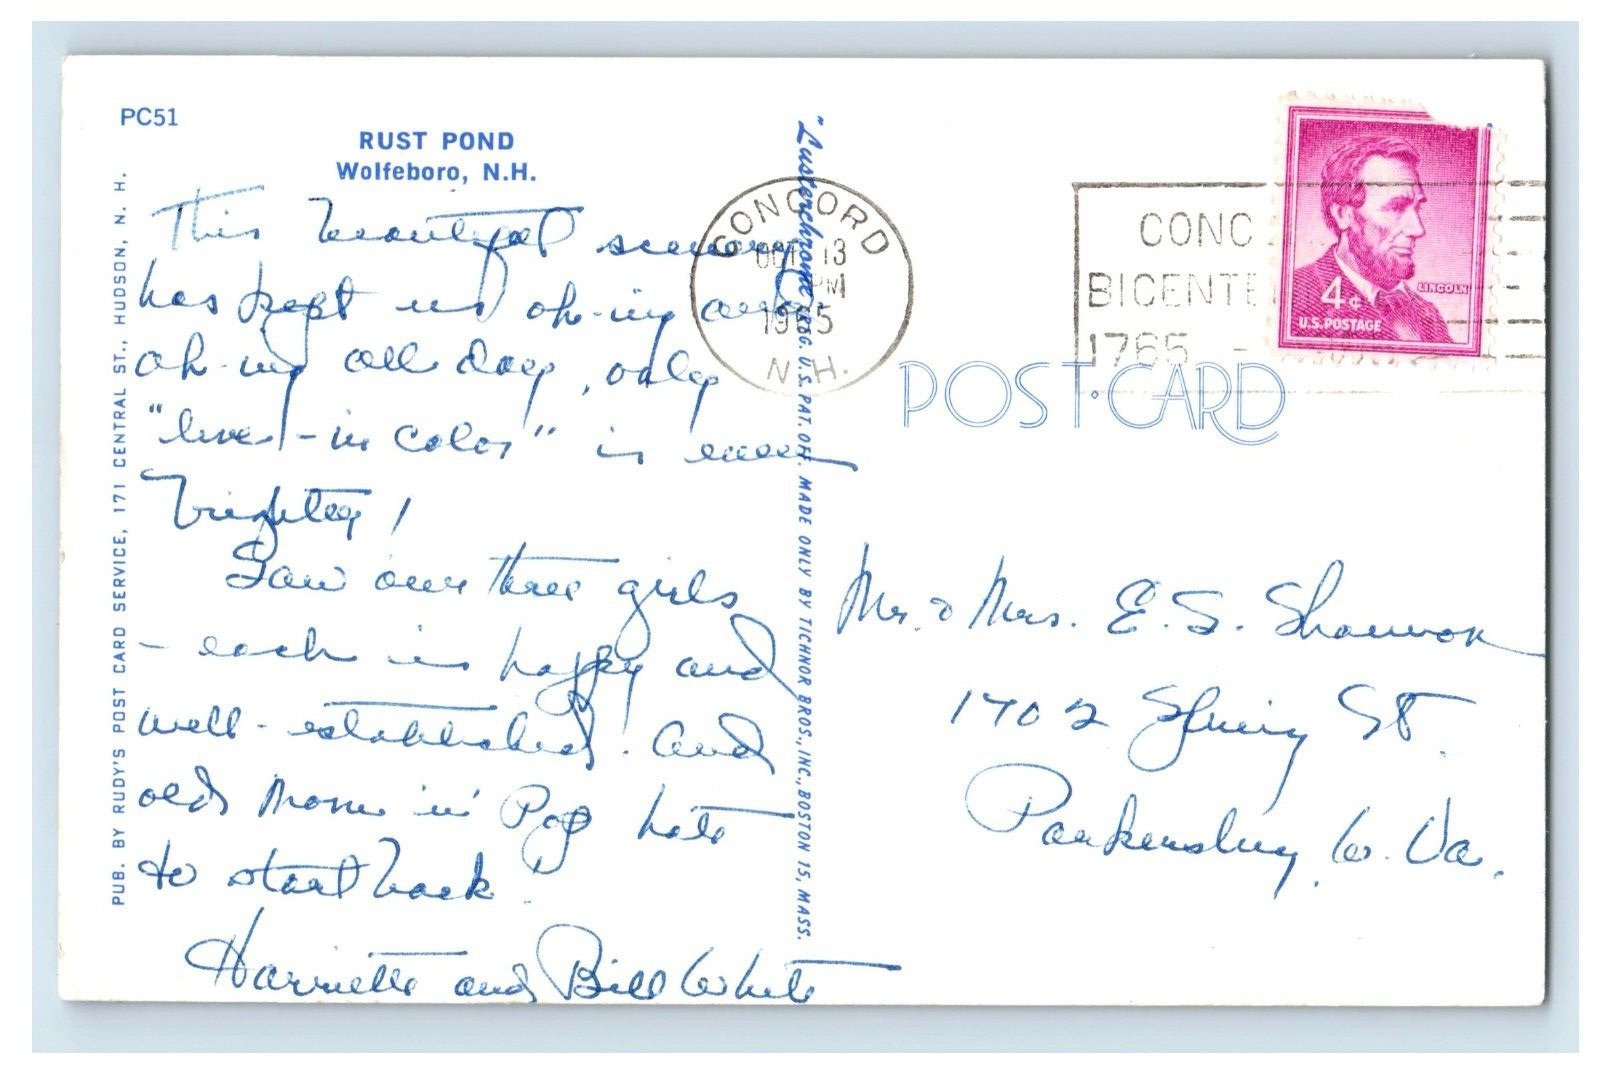 PC51
RUST POND
Wolfeboro, N.H.
This beautiful scenery
has kept us oh-ing and
oh-ing all day, only
"lived-in color" is even
brighter!
Saw our three girls
- each is happy and
well-established. And
old Mom 'n' Pop hate
to start back.
Harriette and Bill White
PUB. BY RUDY'S POST CARD SERVICE, 171 CENTRAL ST., HUDSON, N. H.
"Lusterchrome" REG. U.S. PAT. OFF. MADE ONLY BY TICHNOR BROS., INC., BOSTON 15, MASS.
CONCORD
OCT 13
PM
1965
N.H.
CONC
BICENTE
1765 -
4¢
LINCOLN
U.S. POSTAGE
POST CARD
Mr. & Mrs. E. S. Shannon
1702 Spring St.
Parkersburg, W. Va.